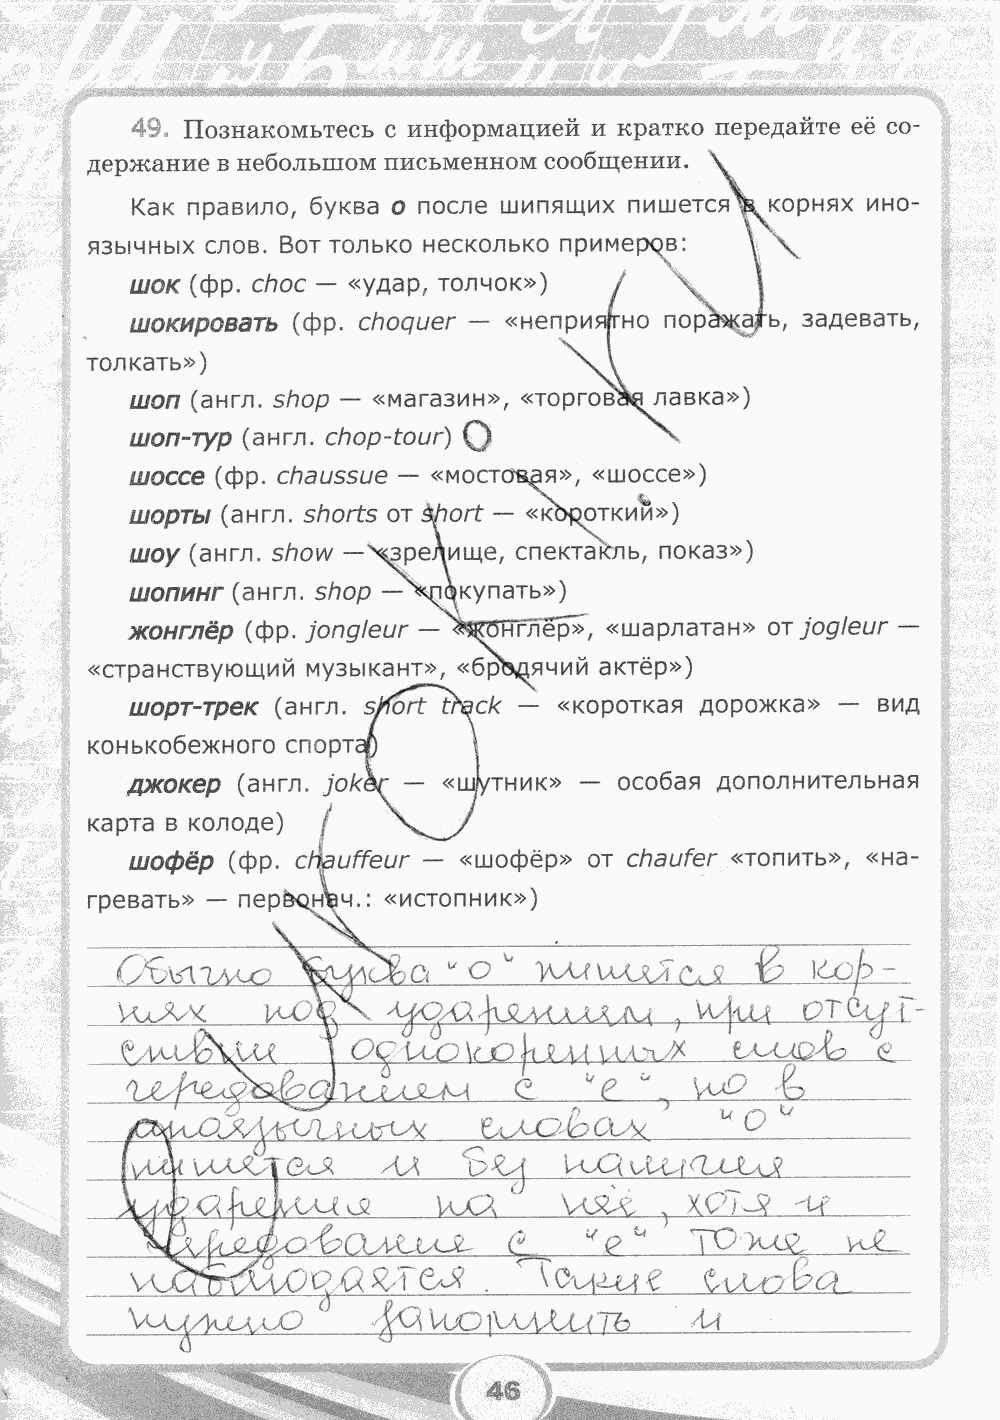 49. Познакомьтесь с информацией и кратко передайте её со-
держание в небольшом письменном сообщении.
Как правило, буква о после шипящих пишется в корнях ино-
язычных слов. Вот только несколько примеров:
шок (фр. choc — «удар, толчок»)
шокировать (фр. choquer — «неприятно поражать, задевать,
толкать»)
шоп (англ. shop — «магазин», «торговая лавка»)
шоп-тур (англ. chop-tour)
шоссе (фр. chaussue — «мостовая», «шоссе»)
шорты (англ. shorts от short — «короткий»)
шоу (англ. show — «зрелище, спектакль, показ»)
шопинг (англ. shop — «покупать»)
жонглёр (фр. jongleur — «жонглёр», «шарлатан» от jogleur —
«странствующий музыкант», «бродячий актёр»)
шорт-трек (англ. short track — «короткая дорожка» — вид
конькобежного спорта)
джокер (англ. joker — «шутник» — особая дополнительная
карта в колоде)
шофёр (фр. chauffeur — «шофёр» от chaufer «топить», «на-
гревать» — первонач.: «истопник»)
Обычно буква "о" пишется в кор-
нях под ударением, при отсут-
ствии однокоренных слов с
чередованием с "е", но в
иноязычных словах "о"
пишется и без наличия
ударения на неё, хотя и
чередование с "е" тоже не
наблюдается. Такие слова
нужно запомнить и
46